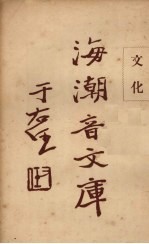 文化
海潮音文庫
于右任